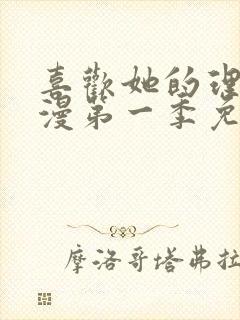 喜歡她的理
漫第一季免
摩洛哥塔弗拉